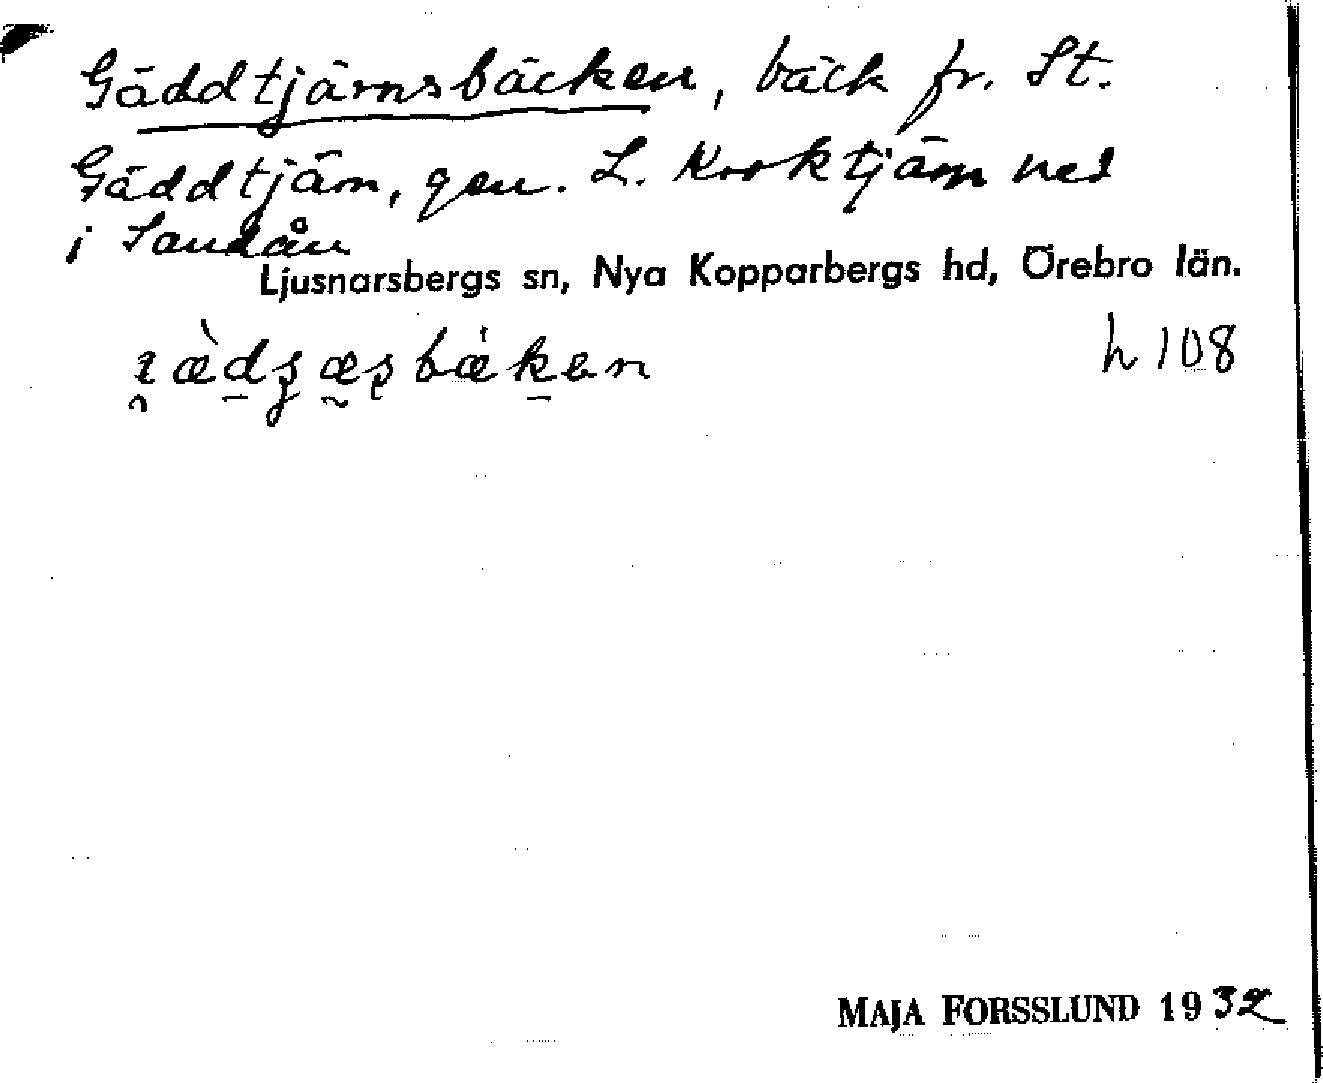 Gäddtjärnsbäcken, bäck fr. St.
Gäddtjärn, gen. L. Kroktjärn ned
i Sandån
Ljusnarsbergs sn, Nya Kopparbergs hd, Örebro län.
h 108
MAJA FORSSLUND 1932